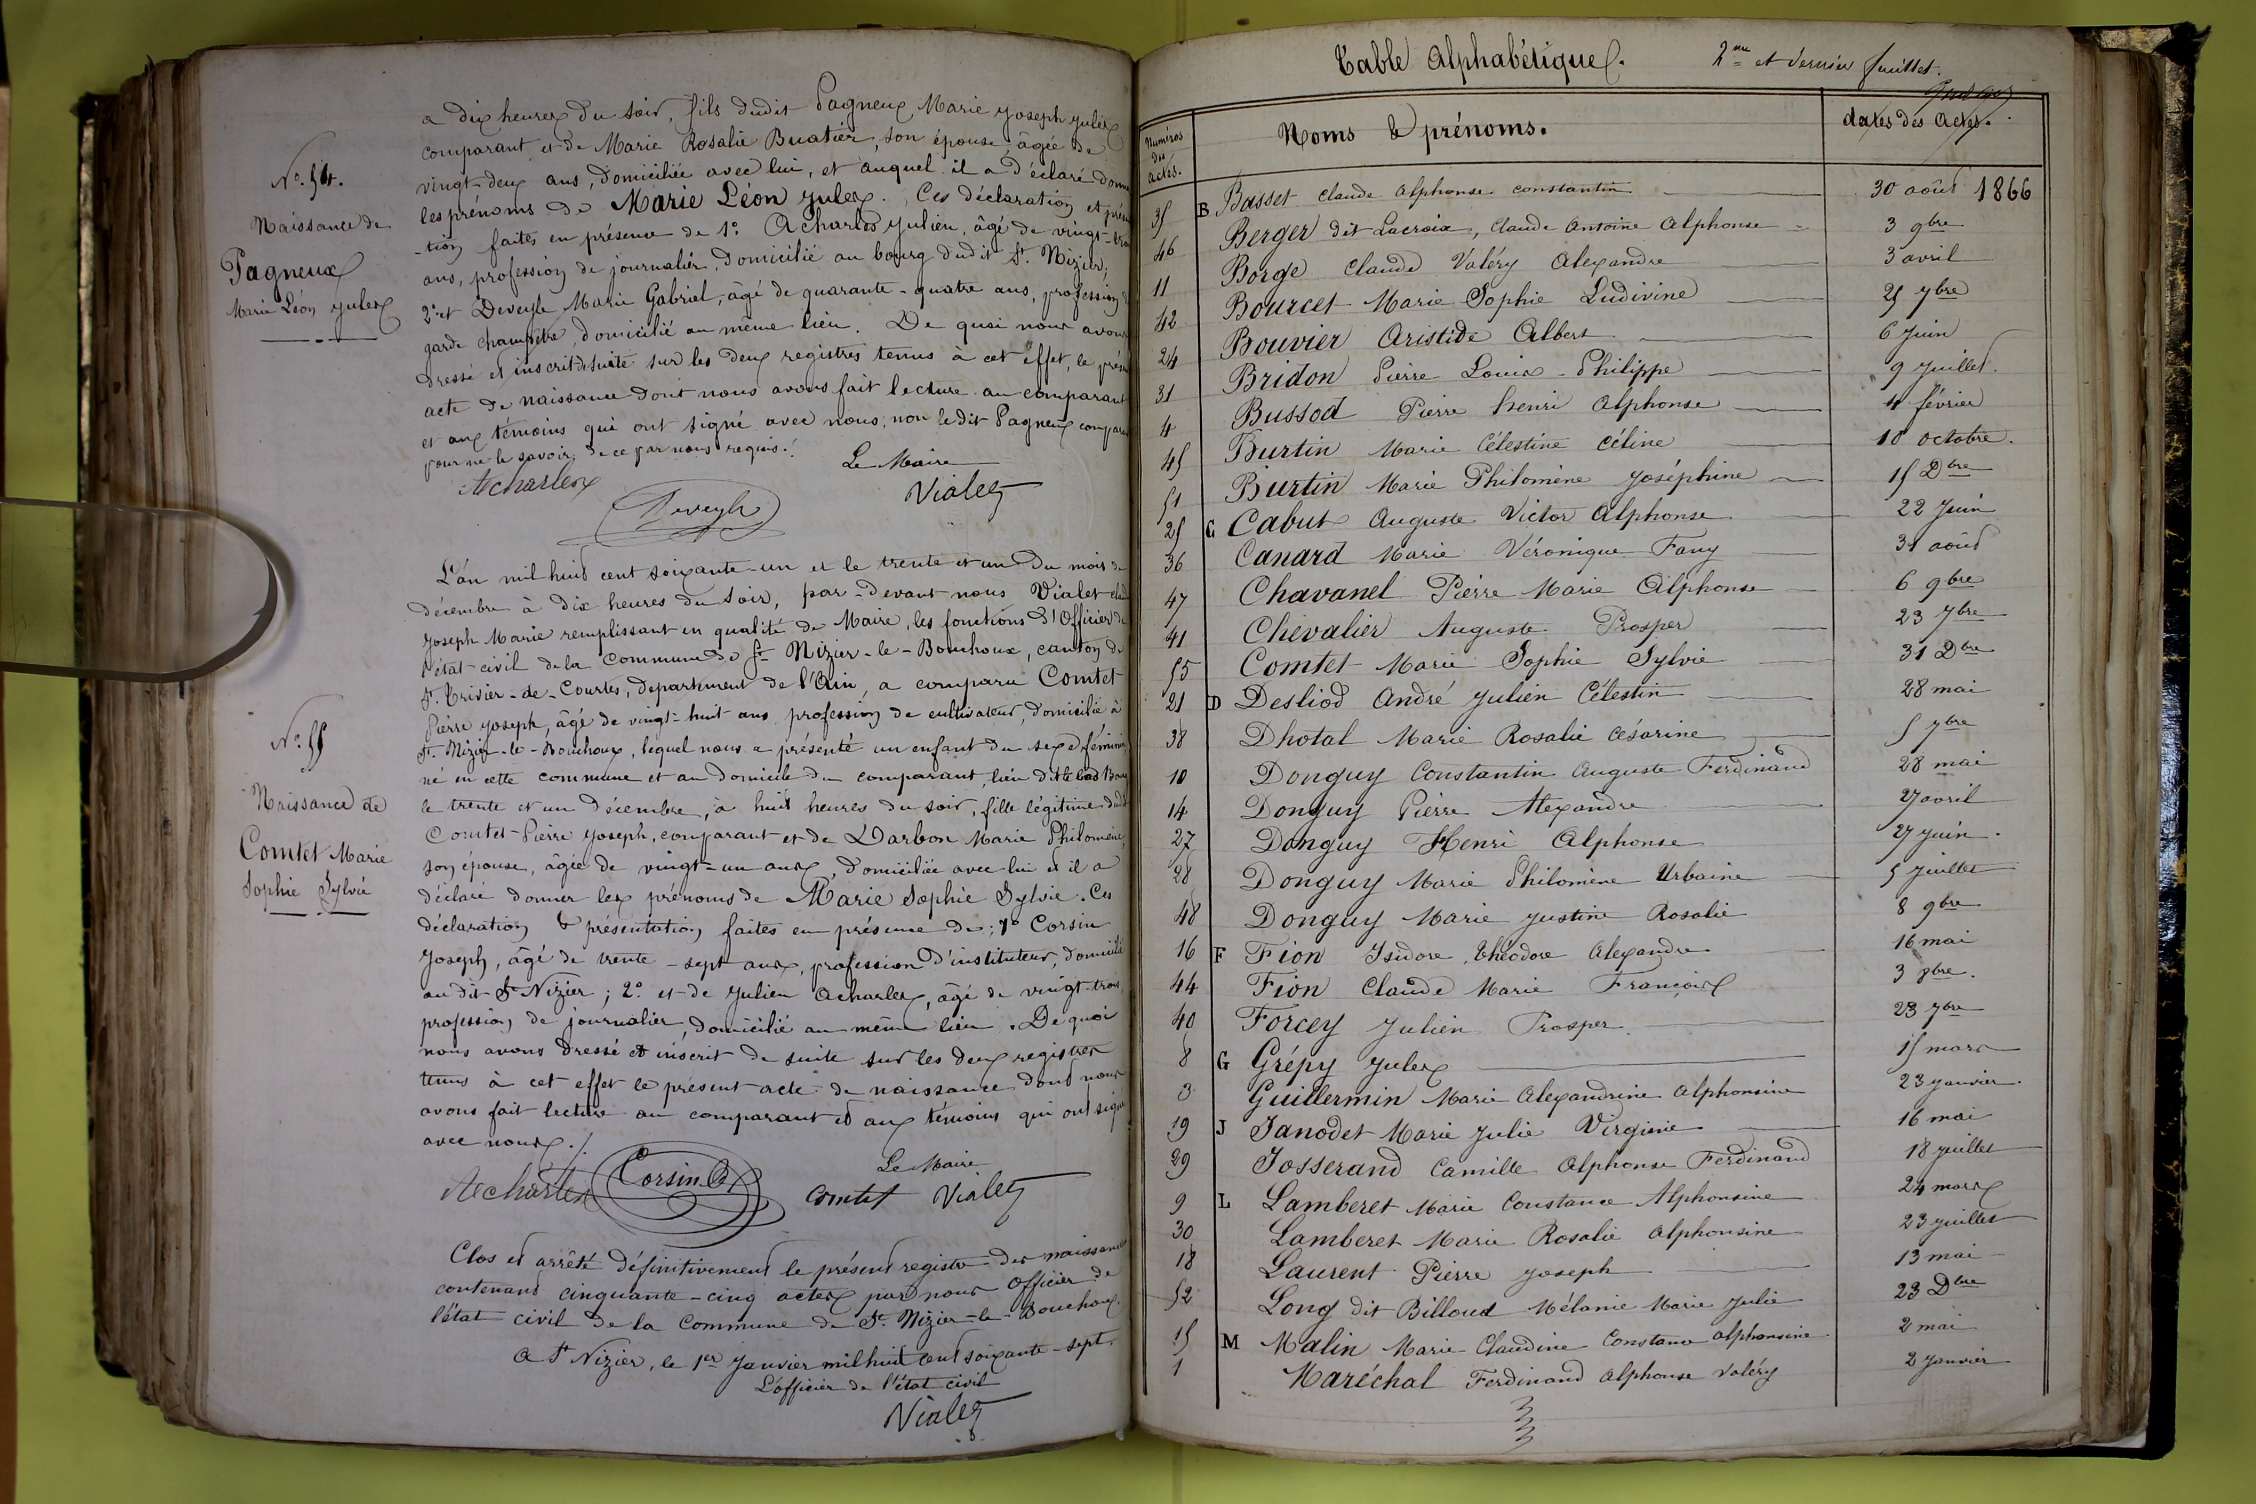 a dix heures du soir, fils dudit Pagneux Marie Joseph Jules
comparant et de Marie Rosalie Buatier, son épouse, âgée de
vingt-deux ans, domiciliée avec lui, et auquel il a déclaré donn
les prénoms de Marie Léon Jules. Ces déclaration et prés
-tion faites en présence de 1º. Acharles Julien, âgé de vingt-tro
ans, profession de journalier, domicilié au bourg dudit St. Nizier;
2º. et Deveyle Marie Gabriel, âgé de quarante-quatre ans, profession d
garde champêtre, domicilié au même lieu. De quoi nous avons
dressé et inscrit de suite sur les deux registres tenus à cet effet, le prés
acte de naissance dont nous avons fait lecture au comparant
et aux témoins qui ont signé avec nous, non ledit Pagneux compara
pour ne le savoir, de ce par nous requis./.
Le Maire
Acharles
Deveyle
Vialet
No. 54.
Naissance de
Pagneux
Marie Léon Jules
L'an mil huit cent soixante-un et le trente et un du mois de
décembre à dix heures du soir, par-devant nous Vialet
Joseph Marie remplissant en qualité de Maire, les fonctions d'Officier de
l'état-civil de la commune de St Nizier-le-Bouchoux, canton de
St. Trivier-de-Courtes, département de l'Ain, a comparu Comtet
Pierre Joseph, âgé de vingt-huit ans, profession de cultivateur, domicilié à
St. Nizier-le-Bouchoux, lequel nous a présenté un enfant du sexe féminin
né en cette commune et au domicile du comparant, lieu dit
le trente et un décembre, à huit heures du soir, fille légitime dudit
Comtet Pierre Joseph, comparant et de Darbon Marie Philomène,
son épouse, âgée de vingt-un ans, domiciliée avec lui et il a
déclaré donner les prénoms de Marie Sophie Sylvie. Ces
déclaration & présentation faites en présence de: 1º Corsin
Joseph, âgé de trente-sept ans, profession d'instituteur, domicilié
au dit St Nizier; 2º. et de Julien Acharles, âgé de vingt-trois,
profession de journalier, domicilié au même lieu. De quoi
nous avons dressé et inscrit de suite sur les deux registres
tenus à cet effet le présent acte de naissance dont nous
avons fait lecture au comparant et aux témoins qui ont signé
avec nous./.
Le Maire
Acharles
Corsin
Comtet
Vialet
No. 55
Naissance de
Comtet Marie
Sophie Sylvie
Clos et arrêté définitivement le présent registre des naissances
contenant cinquante-cinq actes par nous Officier de
l'état civil de la Commune de St. Nizier-le-Bouchoux.
A St Nizier, le 1er Janvier mil huit cent soixante-sept.
L'officier de l'état civil
Vialet
Table Alphabétique. 2me et dernier feuillet.
Numéros des actes. Noms & prénoms. dates des actes.
35 B Basset Claude Alphonse Constantin 30 août 1866
46 Berger dit Lacroix, Claude Antoine Alphonse 3 9bre
11 Borge Claude Valéry Alexandre 3 avril
42 Bourcet Marie Sophie Ludivine 25 7bre
24 Bouvier Aristide Albert 6 Juin
31 Bridon Pierre Louis-Philippe 9 Juillet.
4 Bussod Pierre henri Alphonse 4 février
45 Burtin Marie Célestine Céline 10 octobre.
51 Burtin Marie Philomène Joséphine 15 Dbre
25 C Cabut Auguste Victor Alphonse 22 Juin
36 Canard Marie Véronique Fany 31 août
47 Chavanel Pierre Marie Alphonse 6 9bre
41 Chevalier Auguste Prosper 23 7bre
55 Comtet Marie Sophie Sylvie 31 Dbre
21 D Desliod André Julien Célestin 28 mai
38 Dhotal Marie Rosalie Césarine 5 7bre
10 Donguy Constantin Auguste Ferdinand 28 mai
14 Donguy Pierre Alexandre 27 avril
27 Donguy Henri Alphonse 27 juin.
28 Donguy Marie Philomène Urbaine 5 Juillet
48 Donguy Marie Justine Rosalie 8 9bre
16 F Fion Isidore, théodore Alexandre 16 mai
44 Fion Claude Marie François 3 8bre.
40 Forcey Julien Prosper 23 7bre
8 G Grépy Jules 15 mars
3 Guillermin Marie Alexandrine Alphonsine 23 janvier.
19 J Janodet Marie Julie Virginie 16 mai
29 Josserand Camille Alphonse Ferdinand 18 juillet
9 L Lamberet Marie Constance Alphonsine 24 mars
30 Lamberet Marie Rosalie Alphonsine 23 juillet
18 Laurent Pierre Joseph 13 mai
52 Long dit Billoud Mélanie Marie Julie 23 Dbre
15 M Malin Marie Claudine Constance Alphonsine 2 mai
1 Maréchal Ferdinand Alphonse Valéry 2 Janvier